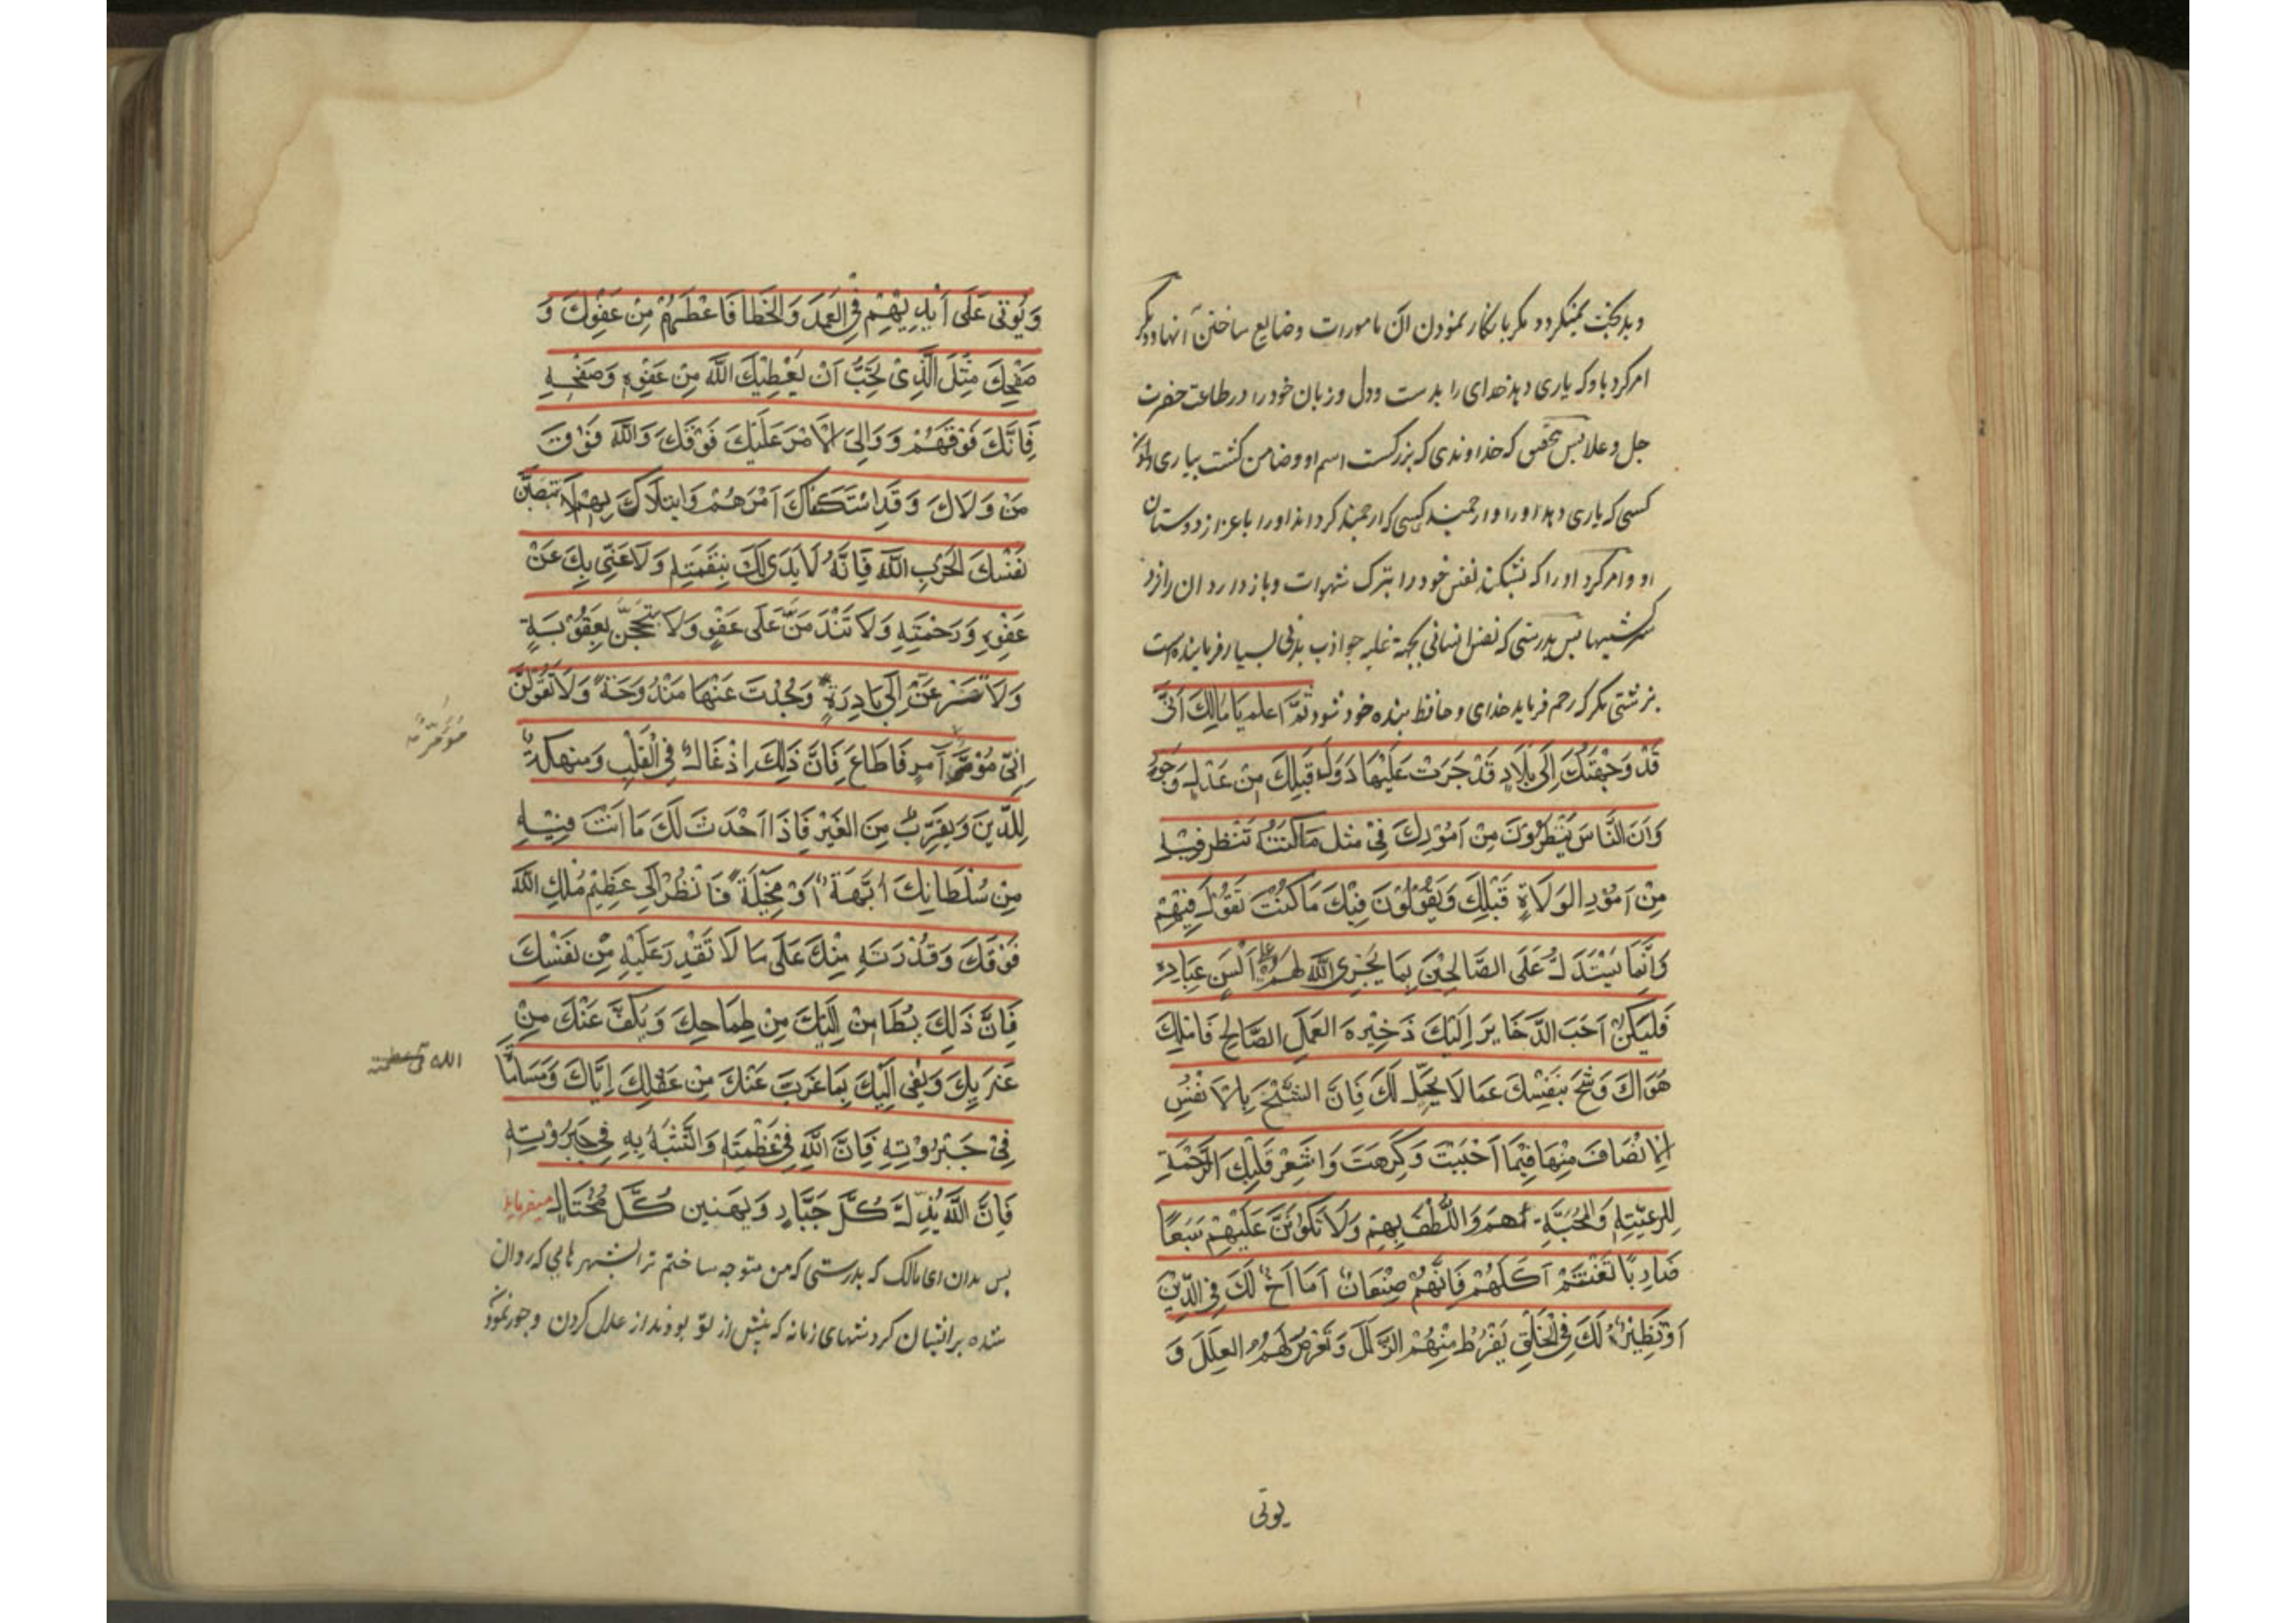 و بدبخت نمیگردد مگر بانکار نمودن ان مامورات و ضایع ساختن آنها و دیگر
امر کرد باو که یاری دهد خدای را بدست و دل و زبان خود را در طاعت حضرت
جل و علا پس بتحقیق که خداوندی که بزرکست اسم او و ضامن کشت بیاری دادن
کسی که یاری دهد او را و ارجمند کسی که ارجمند کرداند او را باعزاز دوستان
او و امر کرد او را که بشکند نفس خود را بترک شهوات و باز دارد ان را نزد
سرکشیها پس بدرستی که نفس انسانی بجهة غلبه جواذب بدنی بسیار فرماینده است
بزشتی مگر که رحم فرماید خدای و حافظ بنده خود شود ثُمَّ اعلم یَا مَالِكُ اَنّی
قَدْ وَجَّهْتُكَ اِلَی بِلَادٍ قَدْ جَرَتْ عَلَیْهَا دُوَلٌ قَبْلَكَ مِنْ عَدْلٍ وَجَوْرٍ
وَاَنَّ النَّاسَ یَنْظُرُوْنَ مِنْ اُمُوْرِكَ فِیْ مِثْلِ مَا كُنْتَ تَنْظُرُ فِیْهِ
مِنْ اُمُوْرِ الوَلَاةِ قَبْلَكَ وَیَقُوْلُوْنَ فِیْكَ مَا كُنْتَ تَقُوْلُ فِیْهِمْ
وَاِنَّمَا یُسْتَدَلُّ عَلَی الصَّالِحِیْنَ بِمَا یُجْرِی اللّٰهُ لَهُمْ عَلَی اَلْسُنِ عِبَادِهِ
فَلْیَكُنْ اَحَبَّ الذَّخَایِرِ اِلَیْكَ ذَخِیْرَةُ العَمَلِ الصَّالِحِ فَامْلِكْ
هَوَاكَ وَشُحَّ بِنَفْسِكَ عَمَّا لَا یَحِلُّ لَكَ فَاِنَّ الشُّحَّ بِالْاَنْفُسِ
الْاِنْصَافُ مِنْهَا فِیْمَا اَحْبَبْتَ وَكَرِهْتَ وَاَشْعِرْ قَلْبَكَ الرَّحْمَةَ
لِلرَّعِیَّةِ وَالْمَحَبَّةَ لَهُمْ وَاللُّطْفَ بِهِمْ وَلَا تَكُوْنَنَّ عَلَیْهِمْ سَبُعًا
ضَارِیًا تَغْتَنِمُ اَكْلَهُمْ فَاِنَّهُمْ صِنْفَانِ اَمَّا اَخٌ لَكَ فِی الدِّیْنِ
اَوْ نَظِیْرٌ لَكَ فِی الْخَلْقِ یَفْرُطُ مِنْهُمُ الزَّلَلُ وَتَعْرِضُ لَهُمُ العِلَلُ وَ
یوتی
وَیُؤْتَی عَلَی اَیْدِیْهِمْ فِی العَمْدِ وَالْخَطَا فَاَعْطِهِمْ مِنْ عَفْوِكَ وَ
صَفْحِكَ مِثْلَ الَّذِیْ تُحِبُّ اَنْ یُعْطِیَكَ اللّٰهُ مِنْ عَفْوِهِ وَصَفْحِهِ
فَاِنَّكَ فَوْقَهُمْ وَ وَالِیَ الْاَمْرِ عَلَیْكَ فَوْقَكَ وَاللّٰهُ فَوْقَ
مَنْ وَلَّاكَ وَ قَدِ اسْتَكْفَاكَ اَمْرَهُمْ وَابْتَلَاكَ بِهِمْ لَا تَنْصِبَنَّ
نَفْسَكَ لِحَرْبِ اللّٰهِ فَاِنَّهُ لَا یَدَیْ لَكَ بِنِقْمَتِهِ وَلَا غِنَی بِكَ عَنْ
عَفْوِهِ وَرَحْمَتِهِ وَلَا تَنْدَمَنَّ عَلَی عَفْوٍ وَلَا تَبْجَحَنَّ بِعُقُوْبَةٍ
وَلَا تُسْرِعَنَّ اِلَی بَادِرَةٍ وَجَدْتَ عَنْهَا مَنْدُوْحَةً وَلَا تَقُوْلَنَّ
اِنِّیْ مُؤَمَّرٌ آمُرُ فَاُطَاعُ فَاِنَّ ذَلِكَ اِدْغَالٌ فِی الْقَلْبِ وَمَنْهَكَةٌ
مُؤَمَّرٌ
لِلدِّیْنِ وَتَقَرُّبٌ مِنَ الغِیَرِ فَاِذَا اَحْدَثَ لَكَ مَا اَنْتَ فِیْهِ
مِنْ سُلْطَانِكَ اُبَّهَةً اَوْ مَخِیْلَةً فَانْظُرْ اِلَی عَظِیْمِ مُلْكِ اللّٰهِ
فَوْقَكَ وَقُدْرَتِهِ مِنْكَ عَلَی مَا لَا تَقْدِرُ عَلَیْهِ مِنْ نَفْسِكَ
فَاِنَّ ذَلِكَ یُطَامِنُ اِلَیْكَ مِنْ طِمَاحِكَ وَیَكُفُّ عَنْكَ مِنْ
غَرْبِكَ وَیَفِی اِلَیْكَ بِمَا عَزَبَ عَنْكَ مِنْ عَقْلِكَ اِیَّاكَ وَمُسَامَاةَ
الله فی عظمته
فِیْ جَبَرُوْتِهِ فَاِنَّ اللّٰهَ فِیْ عَظْمَتِهِ وَالتَّشَبُّهَ بِهِ فِی جَبَرُوْتِهِ
فَاِنَّ اللّٰهَ یُذِلُّ كُلَّ جَبَّارٍ وَیُهِیْنُ كُلَّ مُخْتَالٍ میفرماید
پس بدان ای مالک که بدرستی که من متوجه ساختم ترا بشهرهایی که روان
شده بر ایشان کردشهای زمانه که پیش از تو بودند از عدل کردن و جور نمودن